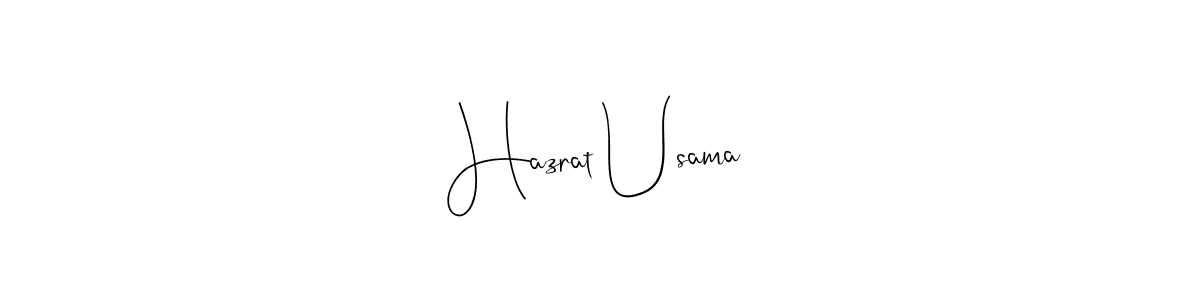 Hazrat Usama